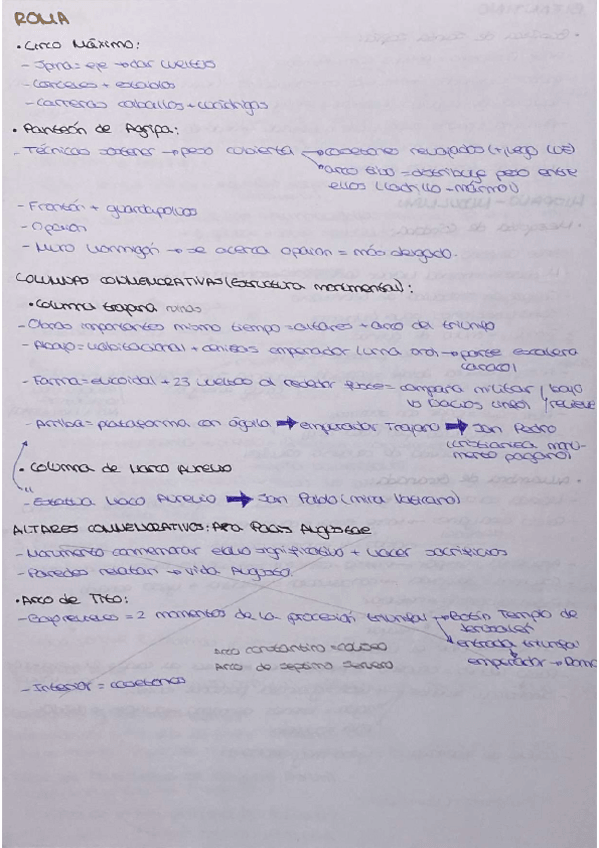 ROMA
• Circo Máximo:
- Spina = eje → dar vueltas
- Carceles + establos
- Carreras caballos + cuádrigas
• Panteón de Agripa:
- Técnicas sostener → peso cubierta → casetones rehundidos (+ juego luz)
→ arco = distribuye peso entre ellos (ladrillo - mármol)
- Frontón + guardapolvos
- Opaion
- Muro hormigón → se acerca opaion = más delgado.
COLUMNAS CONMEMORATIVAS (Estructura monumental):
• Columna trajana
- Obras importantes mismo tiempo = altares + arco del triunfo
- Abajo = habitacional + cenizas emperador (urna oro) → parte escalera caracol
- Forma = elicoidal + 23 vueltas al redector = campaña militar
vs Dacios bajo relieve
- Arriba = plataforma con águila → emperador Trajano → San Pedro
(cristianiza monumento pagano)
• Columna de Marco Aurelio
- Estatua Marco Aurelio → San Pablo (mira Vaticano)
ALTARES CONMEMORATIVOS: Ara Pacis Augustae
- Monumento conmemorar significativo + hacer sacrificios
- Paredes relatan → vida Augusto.
• Arco de Tito:
- Bajorrelieves = 2 momentos de la procesión triunfal → Botín Templo de
Jerusalén
→ entrada triunfal
emperador → Roma
Arco constantino = coliseo
Arco de septimo severo
- Interior = casetones